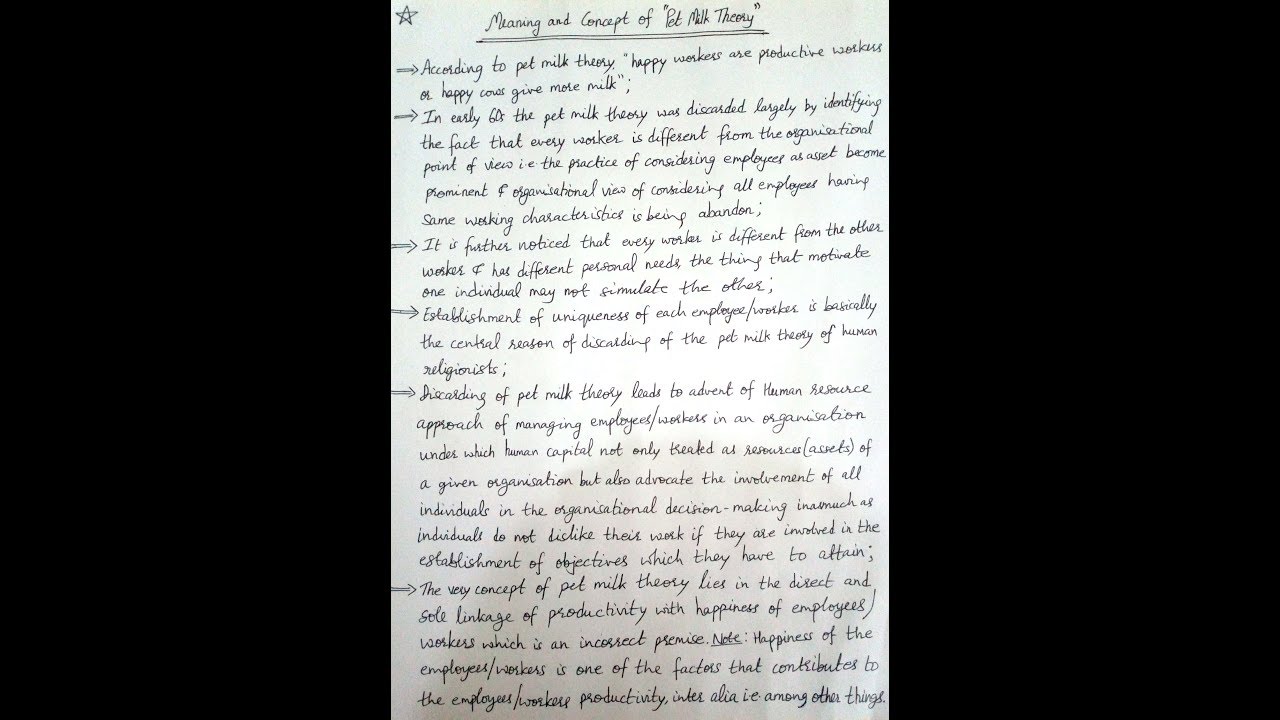 Meaning and Concept of "Pet Milk Theory"
⇒ According to pet milk theory, "happy workers are productive workers
or happy cows give more milk";
⇒ In early 60s the pet milk theory was discarded largely by identifying
the fact that every worker is different from the organisational
point of view i.e. the practice of considering employees as asset become
prominent & organisational view of considering all employees having
same working characteristics is being abandon;
⇒ It is further noticed that every worker is different from the other
worker & has different personal needs, the thing that motivate
one individual may not simulate the other;
⇒ Establishment of uniqueness of each employee/worker is basically
the central reason of discarding of the pet milk theory of human
religionists;
⇒ Discarding of pet milk theory leads to advent of Human resource
approach of managing employees/workers in an organisation
under which human capital not only treated as resources (assets) of
a given organisation but also advocate the involvement of all
individuals in the organisational decision-making inasmuch as
individuals do not dislike their work if they are involved in the
establishment of objectives which they have to attain;
⇒ The very concept of pet milk theory lies in the direct and
sole linkage of productivity with happiness of employees/
workers which is an incorrect premise. Note: Happiness of the
employees/workers is one of the factors that contributes to
the employees/workers productivity, inter alia i.e. among other things.